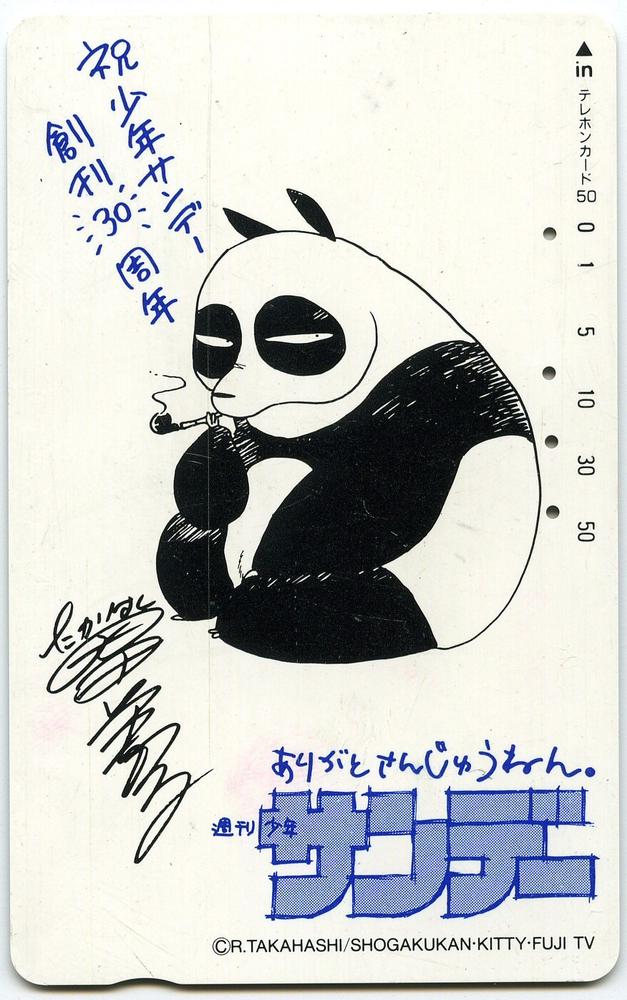 祝 少年サンデー
創刊30周年
▲
in
テレホンカード50
0
1
5
10
30
50
たかはし
ありがとさんじゅうねん。
週刊少年
サンデー
©R.TAKAHASHI/SHOGAKUKAN･KITTY･FUJI TV